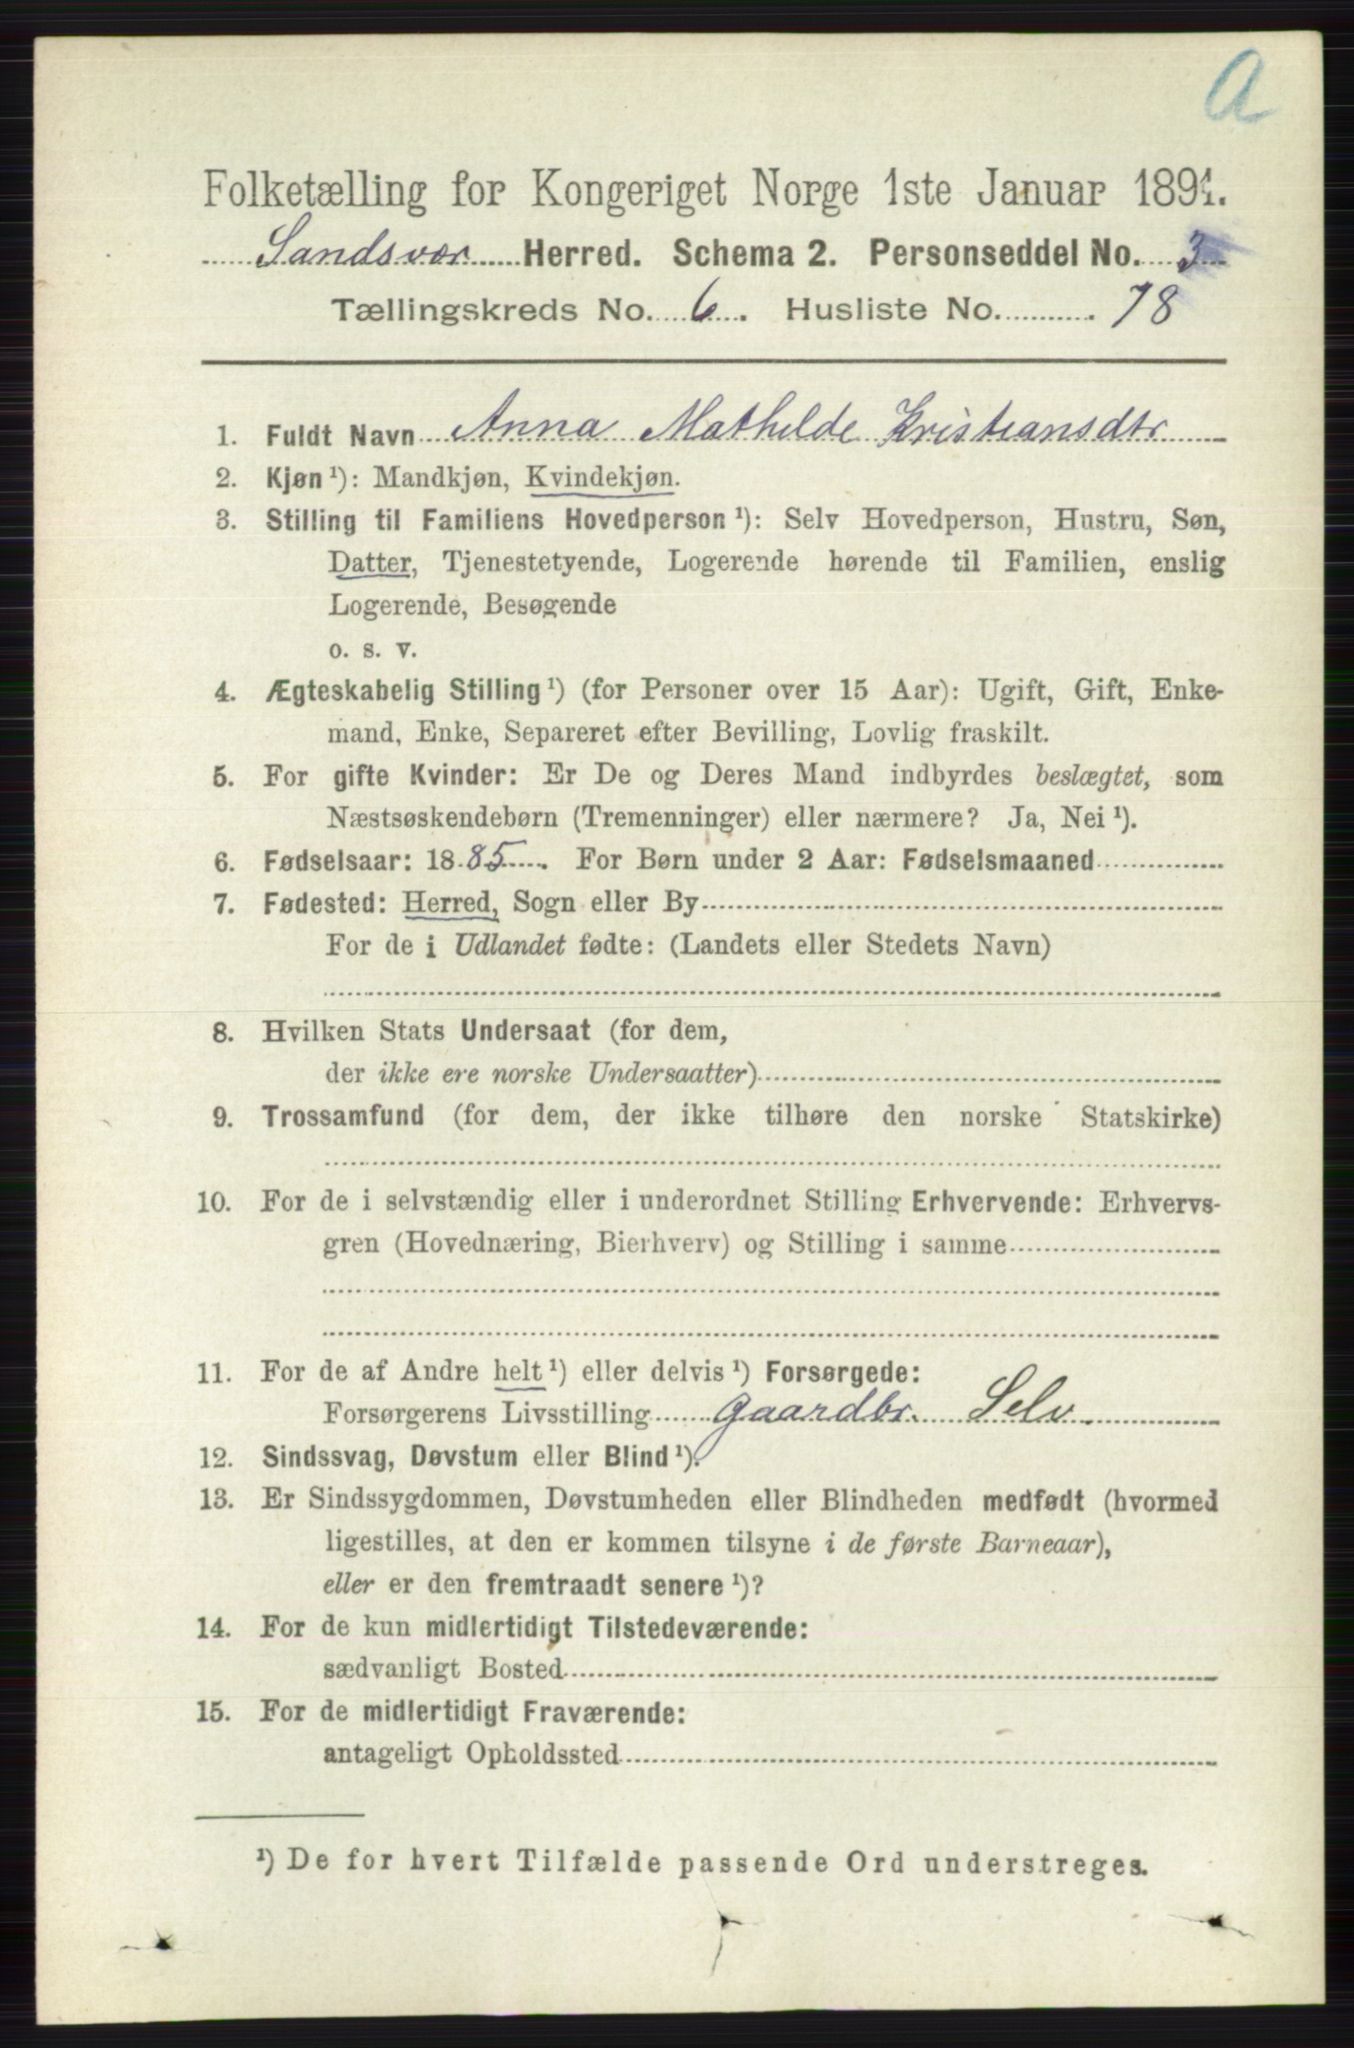 a
Folketælling for Kongeriget Norge 1ste Januar 1891.
Sandsvær Herred. Schema 2. Personseddel No. 3
Tællingskreds No. 6. Husliste No. 78
1. Fuldt Navn Anna Mathilde Kristiansdtr
2. Kjøn ¹): Mandkjøn, Kvindekjøn.
3. Stilling til Familiens Hovedperson ¹): Selv Hovedperson, Hustru, Søn,
Datter, Tjenestetyende, Logerende hørende til Familien, enslig
Logerende, Besøgende
o. s. v.
4. Ægteskabelig Stilling ¹) (for Personer over 15 Aar): Ugift, Gift, Enke-
mand, Enke, Separeret efter Bevilling, Lovlig fraskilt.
5. For gifte Kvinder: Er De og Deres Mand indbyrdes beslægtet, som
Næstsøskendebørn (Tremenninger) eller nærmere? Ja, Nei ¹).
6. Fødselsaar: 1885. For Børn under 2 Aar: Fødselsmaaned
7. Fødested: Herred, Sogn eller By
For de i Udlandet fødte: (Landets eller Stedets Navn)
8. Hvilken Stats Undersaat (for dem,
der ikke ere norske Undersaatter)
9. Trossamfund (for dem, der ikke tilhøre den norske Statskirke)
10. For de i selvstændig eller i underordnet Stilling Erhvervende: Erhvervs-
gren (Hovednæring, Bierhverv) og Stilling i samme
11. For de af Andre helt ¹) eller delvis ¹) Forsørgede:
Forsørgerens Livsstilling Gaardbr. Selv.
12. Sindssvag, Døvstum eller Blind ¹).
13. Er Sindssygdommen, Døvstumheden eller Blindheden medfødt (hvormed
ligestilles, at den er kommen tilsyne i de første Barneaar),
eller er den fremtraadt senere ¹)?
14. For de kun midlertidigt Tilstedeværende:
sædvanligt Bosted
15. For de midlertidigt Fraværende:
antageligt Opholdssted
¹) De for hvert Tilfælde passende Ord understreges.